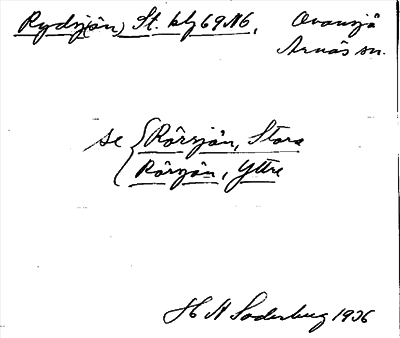 Rydsjön, St. blg 69 N6, Ovansjö
Arnäs sn.
se { Rörsjön, Stora
Rörsjön, Yttre
H A Söderberg 1936